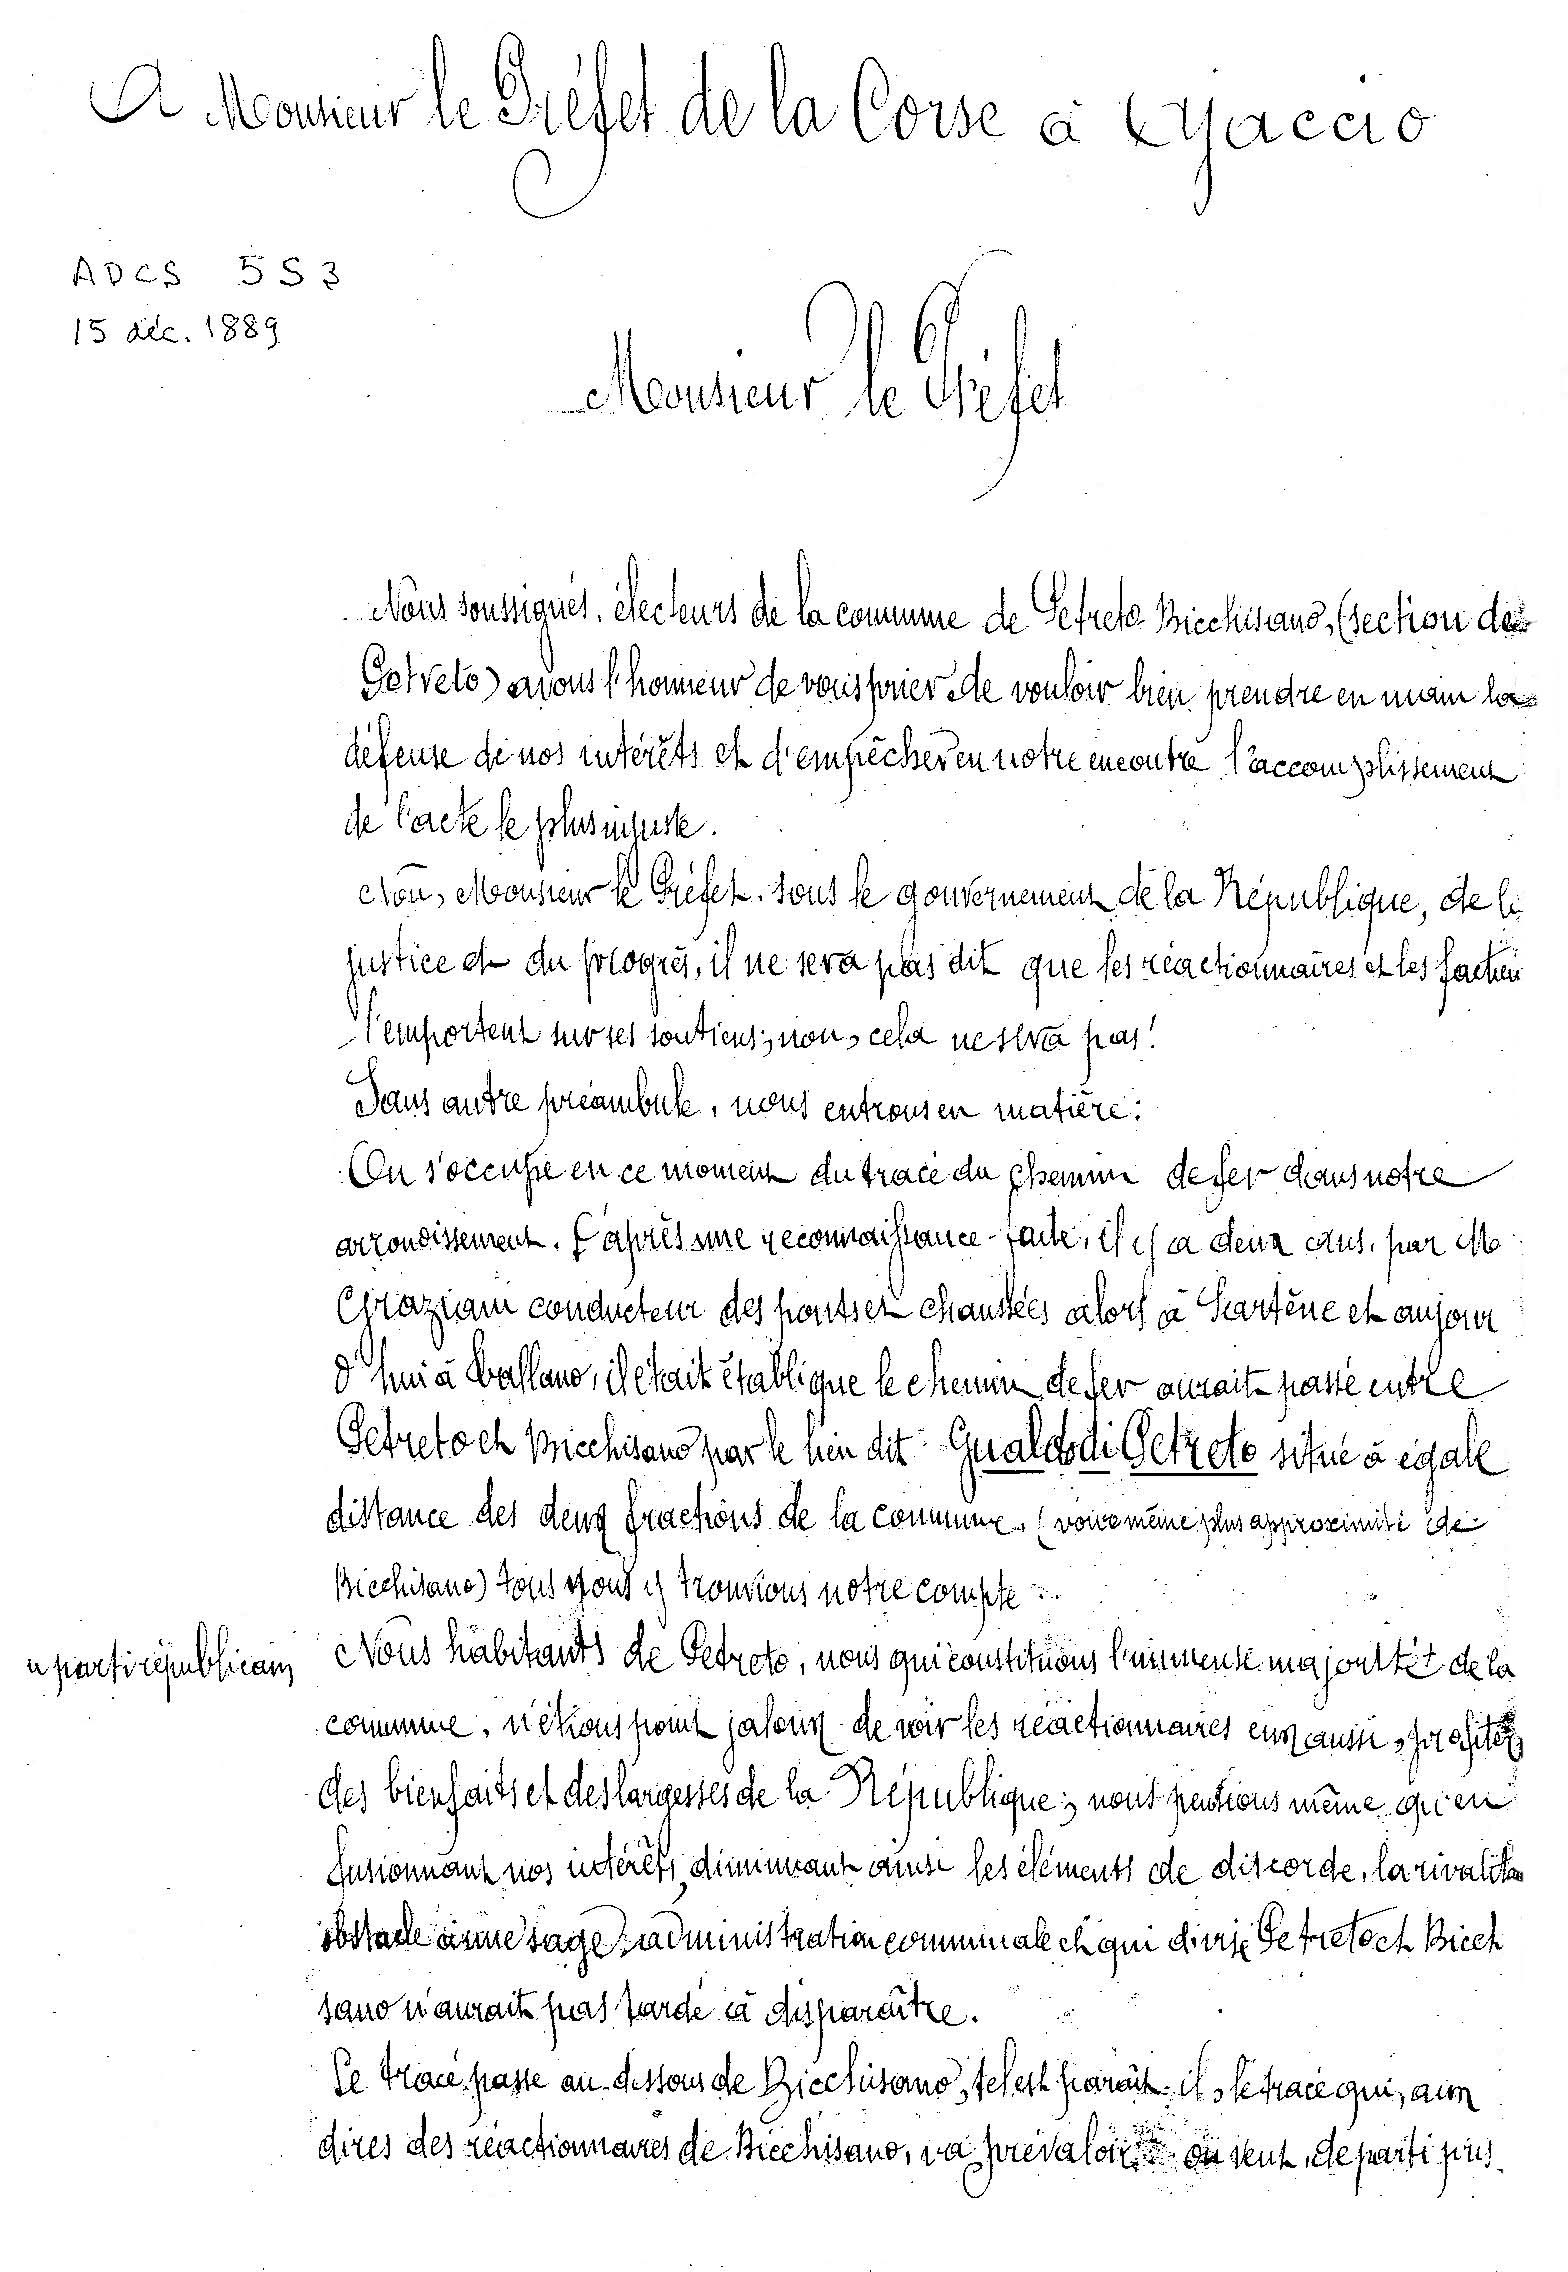 A Monsieur le Préfet de la Corse à Ajaccio
ADCS 5S3
15 déc. 1889
Monsieur le Préfet
Nous soussignés, électeurs de la commune de Petreto-Bicchisano, (section de
Petreto) avons l'honneur de vous prier de vouloir bien prendre en main la
défense de nos intérêts et d'empêcher en notre encontre l'accomplissement
de l'acte le plus injuste.
Non, Monsieur le Préfet, sous le gouvernement de la République, de la
justice et du progrès, il ne sera pas dit que les réactionnaires et les factieu
l'emportent sur ses soutiens; non, cela ne sera pas!
Sans autre préambule, nous entrons en matière:
On s'occupe en ce moment du tracé du chemin de fer dans notre
arrondissement. D'après une reconnaissance faite, il y a deux ans, par M
Graziani conducteur des ponts et chaussées alors à Sartène et aujour
d'hui à Vallano, il était établi que le chemin de fer aurait passé entre
Petreto et Bicchisano par le lieu dit Gualdo di Petreto situé à égale
distance des deux fractions de la commune. (voire même plus approximité de
Bicchisano) tous nous y trouvions notre compte.
u parti républicain
Nous habitants de Petreto, nous qui constituons l'immense majorité de la
commune, n'étions point jaloux de voir les réactionnaires eux aussi, profiter
des bienfaits et des largesses de la République; nous pensions même qu'en
fusionnant nos intérêts, diminuant ainsi les éléments de discorde, la rivalité
obstacle à une sage administration communale et qui divise Petreto et Bicch
sano n'aurait pas tardé à disparaître.
Le tracé passe au-dessous de Bicchisano, tel est paraît-il, le tracé qui, aux
dires des réactionnaires de Bicchisano, va prévaloir. on veut, de parti pris